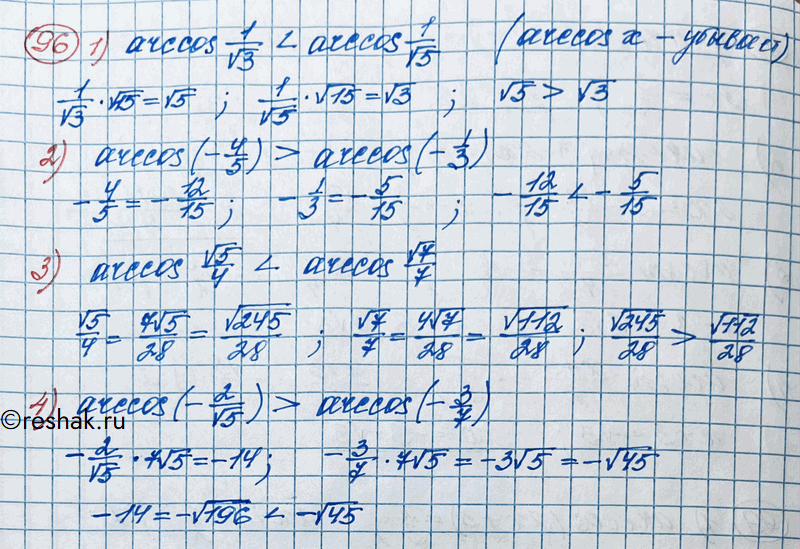 96 1) arccos 1/√3 < arccos 1/√5 (arccos x – убывает)
1/√3 · √15 = √5 ; 1/√5 · √15 = √3 ; √5 > √3
2) arccos(-4/5) > arccos(-1/3)
-4/5 = -12/15 ; -1/3 = -5/15 ; -12/15 < -5/15
3) arccos √5/4 < arccos √7/7
√5/4 = 7√5/28 = √245/28 ; √7/7 = 4√7/28 = √112/28 ; √245/28 > √112/28
4) arccos(-2/√5) > arccos(-3/7)
©reshak.ru
-2/√5 · 7√5 = -14 ; -3/7 · 7√5 = -3√5 = -√45
-14 = -√196 < -√45